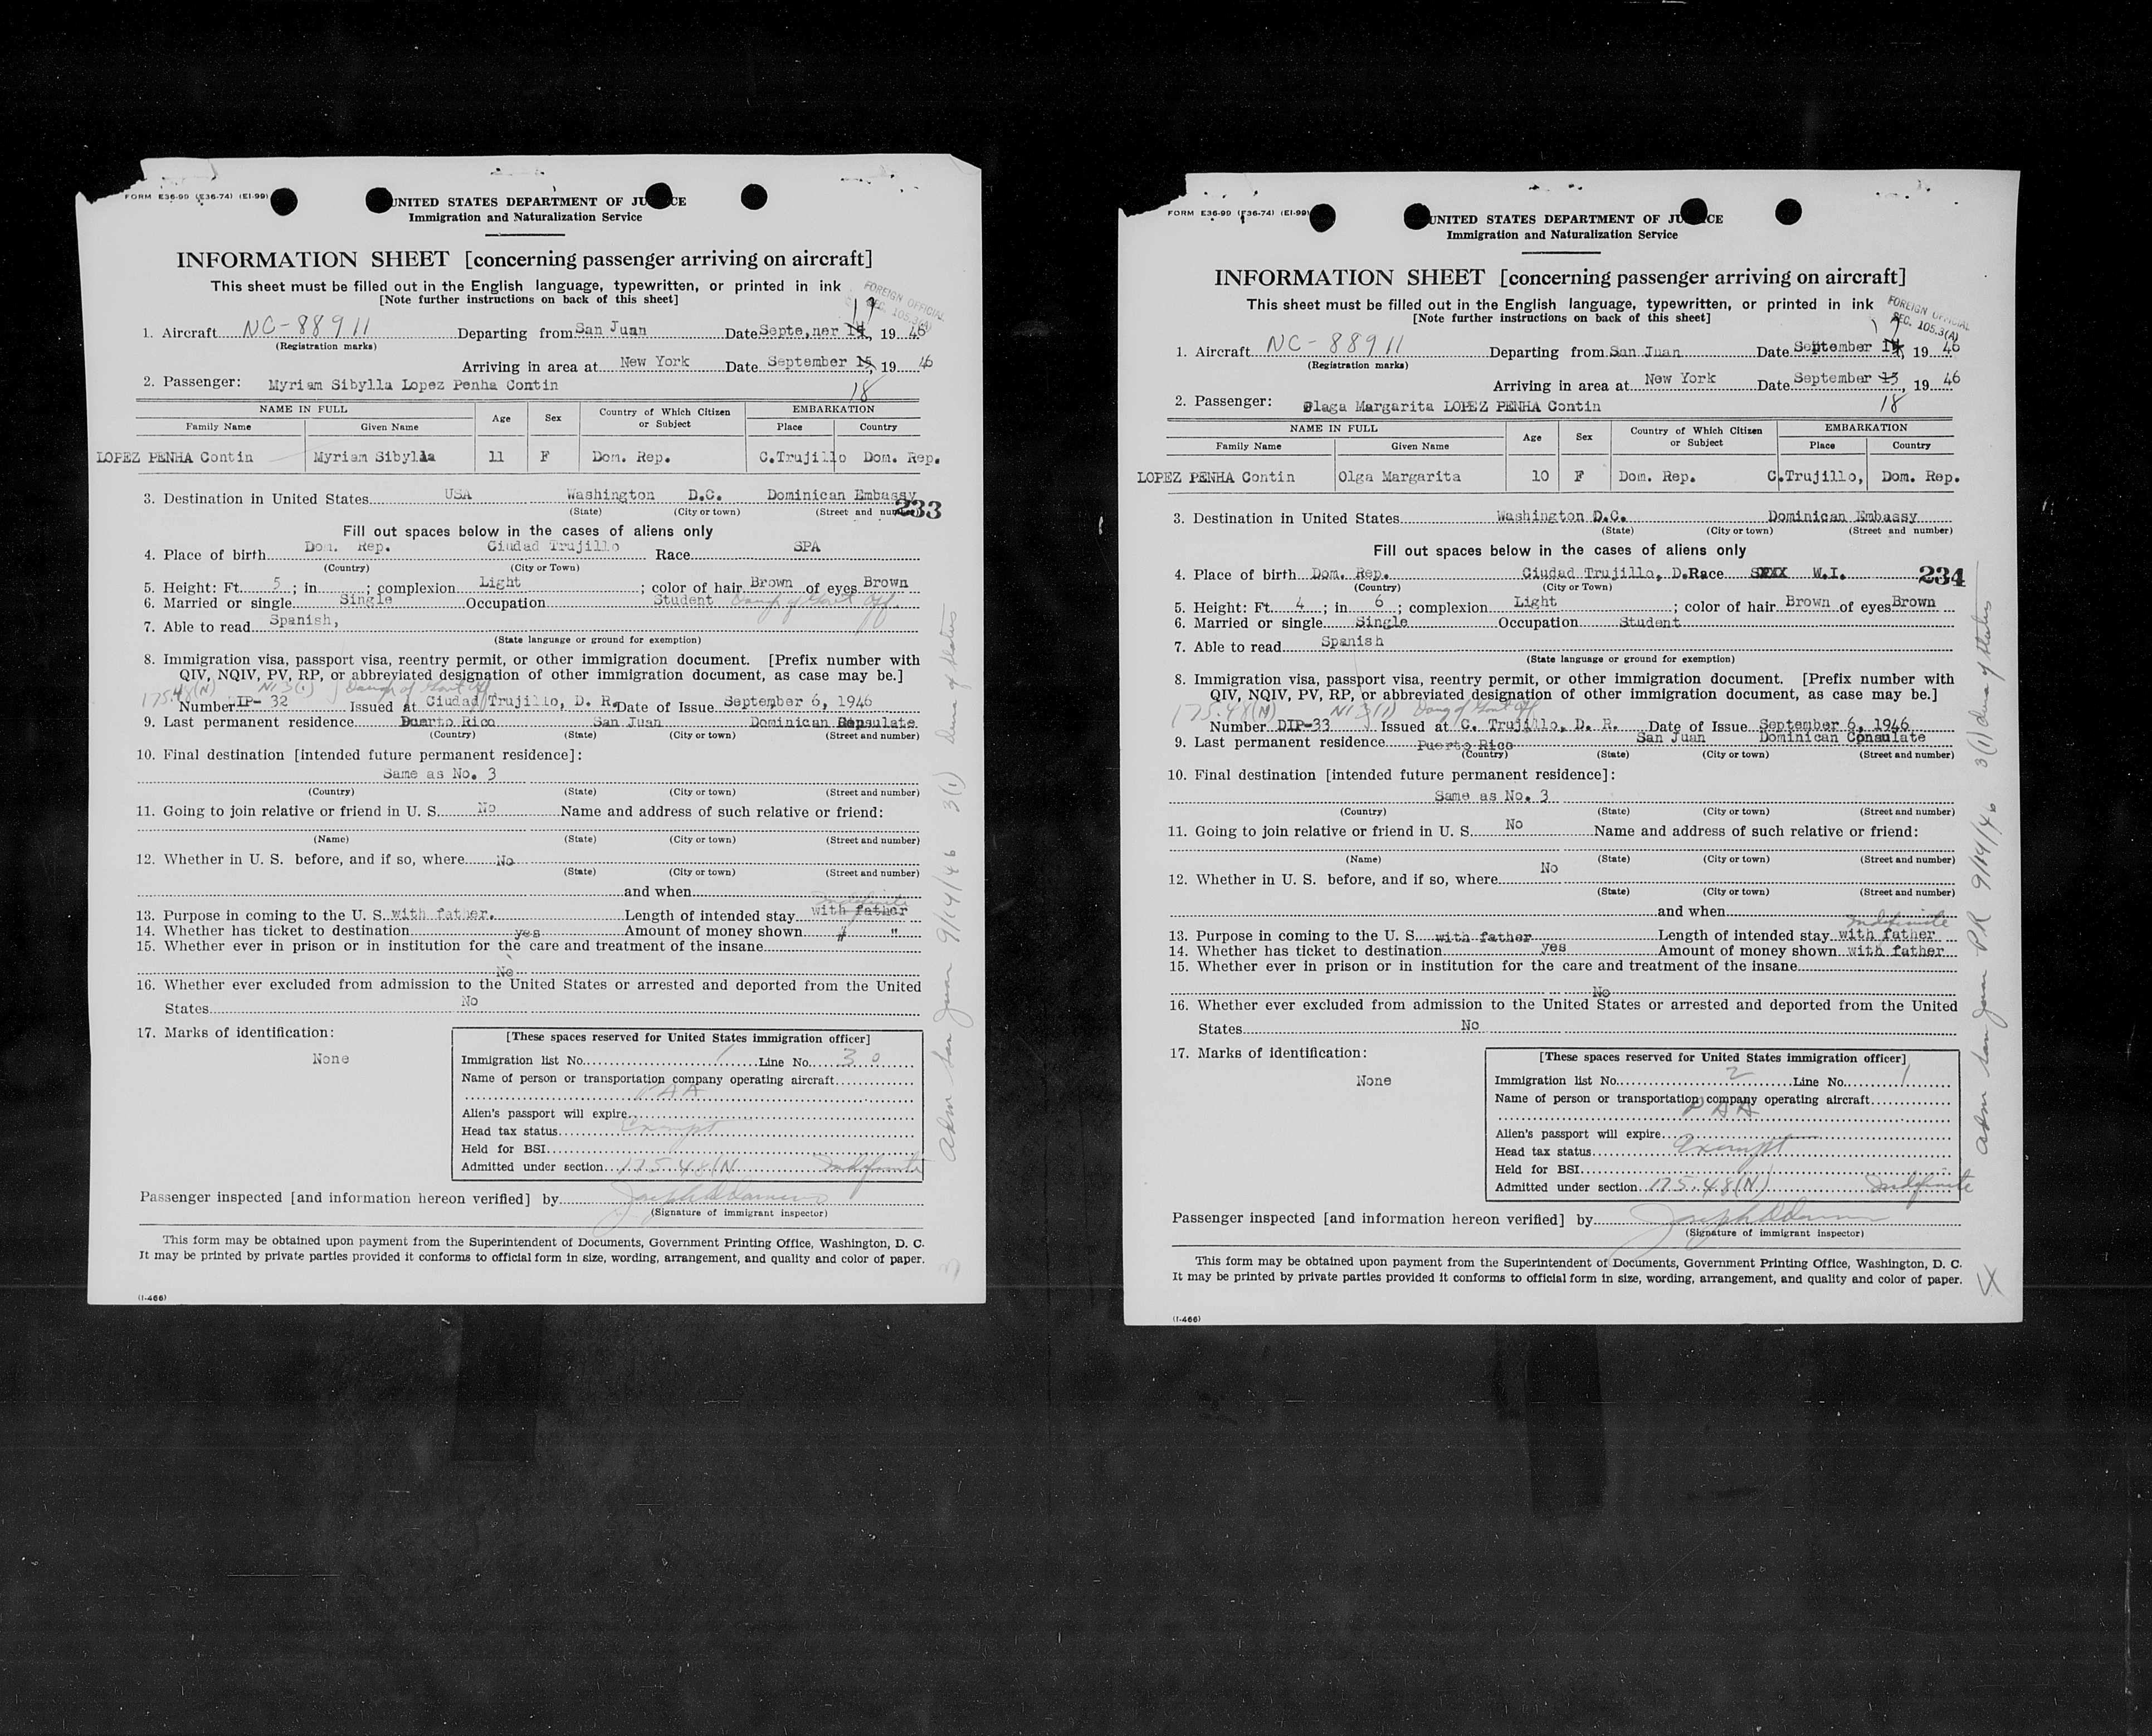 FORM E36-99 (E36-74) (EI-99)
UNITED STATES DEPARTMENT OF JU CE
Immigration and Naturalization Service
INFORMATION SHEET [concerning passenger arriving on aircraft]
This sheet must be filled out in the English language, typewritten, or printed in ink
[Note further instructions on back of this sheet]
FOREIGN OFFICIAL
SEC. 105.3(A)
17
1. Aircraft NC-88911 Departing from San Juan Date Septe,ner 14, 19 46
(Registration marks)
Arriving in area at New York Date September 15, 19 46
18
2. Passenger: Myriam Sibylla Lopez Penha Contin
NAME IN FULL Age Sex Country of Which Citizen or Subject EMBARKATION
Family Name Given Name Place Country
LOPEZ PENHA Contin Myriam Sibylla 11 F Dom. Rep. C.Trujillo Dom. Rep.
3. Destination in United States USA Washington D.C. Dominican Embassy
(State) (City or town) (Street and number)
233
Fill out spaces below in the cases of aliens only
4. Place of birth Dom. Rep. Ciudad Trujillo Race SPA
(Country) (City or Town)
5. Height: Ft. 5 ; in ; complexion Light ; color of hair Brown of eyes Brown
6. Married or single Single Occupation Student Daug of Govt Off.
7. Able to read Spanish,
(State language or ground for exemption)
8. Immigration visa, passport visa, reentry permit, or other immigration document. [Prefix number with
QIV, NQIV, PV, RP, or abbreviated designation of other immigration document, as case may be.]
175.48(N) NI 3(1) Daug of Govt Off
Number DIP- 32 Issued at Ciudad Trujillo, D. R. Date of Issue September 6, 1946
9. Last permanent residence Puerto Rico San Juan Dominican Consulate
(Country) (State) (City or town) (Street and number)
10. Final destination [intended future permanent residence]:
Same as No. 3
(Country) (State) (City or town) (Street and number)
11. Going to join relative or friend in U. S. No Name and address of such relative or friend:
(Name) (State) (City or town) (Street and number)
12. Whether in U. S. before, and if so, where No
(State) (City or town) (Street and number)
and when
Indefinite
13. Purpose in coming to the U. S. with father. Length of intended stay with father
14. Whether has ticket to destination yes Amount of money shown " "
15. Whether ever in prison or in institution for the care and treatment of the insane
No
16. Whether ever excluded from admission to the United States or arrested and deported from the United
States No
17. Marks of identification:
None
[These spaces reserved for United States immigration officer]
Immigration list No. 1 Line No. 30
Name of person or transportation company operating aircraft
PAA
Alien's passport will expire
Head tax status Exempt
Held for BSI
Admitted under section 175.48(N Indefinite
Passenger inspected [and information hereon verified] by
(Signature of immigrant inspector)
This form may be obtained upon payment from the Superintendent of Documents, Government Printing Office, Washington, D. C.
It may be printed by private parties provided it conforms to official form in size, wording, arrangement, and quality and color of paper.
(I-466)
adm San Juan 9/14/46 3(1) dura of status
3
FORM E36-99 (E36-74) (EI-99)
UNITED STATES DEPARTMENT OF JU CE
Immigration and Naturalization Service
INFORMATION SHEET [concerning passenger arriving on aircraft]
This sheet must be filled out in the English language, typewritten, or printed in ink
[Note further instructions on back of this sheet]
FOREIGN OFFICIAL
SEC. 105.3(A)
17
1. Aircraft NC-88911 Departing from San Juan Date September 14, 19 46
(Registration marks)
Arriving in area at New York Date September 15, 19 46
18
2. Passenger: Olaga Margarita LOPEZ PENHA Contin
NAME IN FULL Age Sex Country of Which Citizen or Subject EMBARKATION
Family Name Given Name Place Country
LOPEZ PENHA Contin Olga Margarita 10 F Dom. Rep. C.Trujillo, Dom. Rep.
3. Destination in United States Washington D.C. Dominican Embassy
(State) (City or town) (Street and number)
Fill out spaces below in the cases of aliens only
4. Place of birth Dom. Rep. Ciudad Trujillo, D. Race W.I.
(Country) (City or Town)
234
5. Height: Ft. 4 ; in 6 ; complexion Light ; color of hair Brown of eyes Brown
6. Married or single Single Occupation Student
7. Able to read Spanish
(State language or ground for exemption)
8. Immigration visa, passport visa, reentry permit, or other immigration document. [Prefix number with
QIV, NQIV, PV, RP, or abbreviated designation of other immigration document, as case may be.]
175.48(N) NI 3(1) Daug of Govt Off
Number DIP-33 Issued at C. Trujillo, D. R. Date of Issue September 6, 1946
9. Last permanent residence Puerto Rico San Juan Dominican Consulate
(Country) (State) (City or town) (Street and number)
10. Final destination [intended future permanent residence]:
Same as No. 3
(Country) (State) (City or town) (Street and number)
11. Going to join relative or friend in U. S. No Name and address of such relative or friend:
(Name) (State) (City or town) (Street and number)
12. Whether in U. S. before, and if so, where No
(State) (City or town) (Street and number)
and when
Indefinite
13. Purpose in coming to the U. S. with father Length of intended stay with father
14. Whether has ticket to destination yes Amount of money shown with father
15. Whether ever in prison or in institution for the care and treatment of the insane
No
16. Whether ever excluded from admission to the United States or arrested and deported from the United
States No
17. Marks of identification:
None
[These spaces reserved for United States immigration officer]
Immigration list No. 2 Line No. 1
Name of person or transportation company operating aircraft
PAA
Alien's passport will expire
Head tax status Exempt
Held for BSI
Admitted under section 175.48(N) Indefinite
Passenger inspected [and information hereon verified] by
(Signature of immigrant inspector)
This form may be obtained upon payment from the Superintendent of Documents, Government Printing Office, Washington, D. C.
It may be printed by private parties provided it conforms to official form in size, wording, arrangement, and quality and color of paper.
(I-466)
adm San Juan PR 9/14/46 3(1) dura of status
4